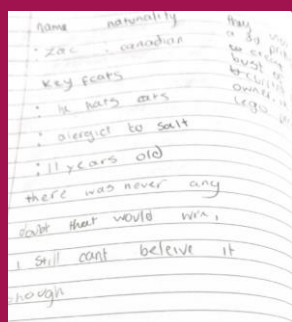 name naturality
: zac . canadian
key feats
: he hats cars
: alergict to salt
: 11 years old
there was never any
doubt that would win,
i still cant beleive it
though
they
a 3d
bust
owner
lego